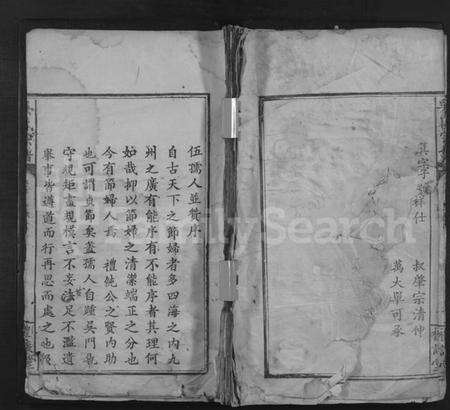 伍孺人並贊序
自古天下之節婦者多四海之内九
州之廣有能序有不能序者其理何
如哉抑以節婦之清潔端正之分也
今有節婦人焉 禮從公之賢内助
也可謂貞節矣蓋孺人自躋吳門競
守規矩盡規慌言不妄法足不濫道
舉事皆遵道而行再思而處之也
真字號祥仕
叔肇宗清仲
萬大畢可承
FamilySearch